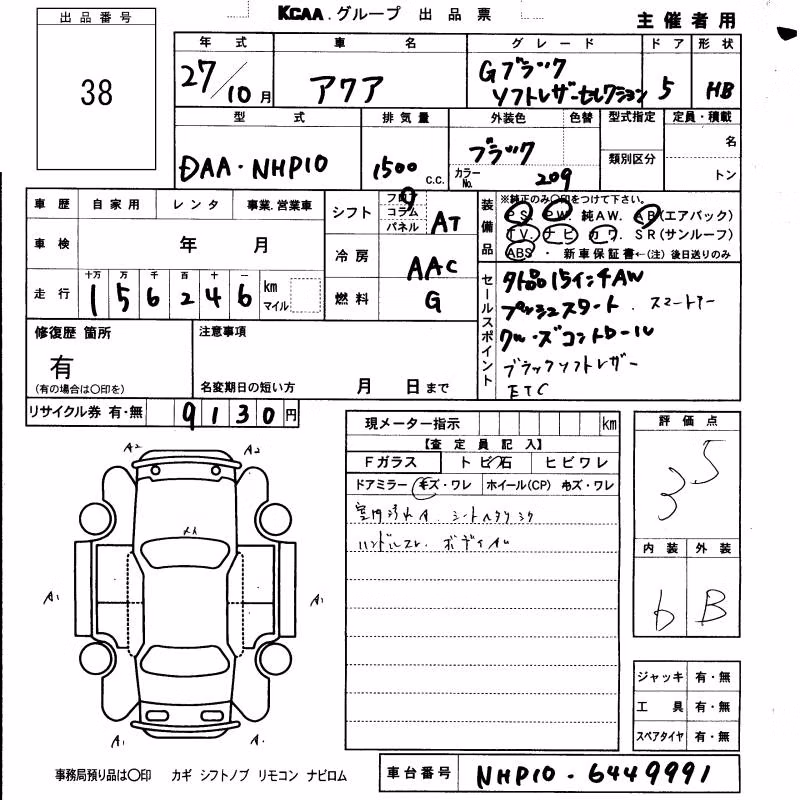 出品番号
38
KCAA.グループ 出品票
主催者用
年式 車名 グレード ドア 形状
27/10月 アクア Gブラック ソフトレザーセレクション 5 HB
型式 排気量 外装色 色替 型式指定 定員・積載
DAA・NHP10 1500 c.c. ブラック カラーNo. 209 類別区分 名 トン
車歴 自家用 レンタ 事業.営業車
車検 年 月
走行 十万 万 千 百 十 一
156246 km マイル
シフト フロア コラム パネル AT
冷房 AAC
燃料 G
装備品 ※純正のみ〇印をつけて下さい。
PS PW 純AW. AB(エアバック)
TV. ナビ カワ SR(サンルーフ)
ABS ・ 新車保証書←(注)後日送りのみ
セールスポイント
外品15インチAW
プッシュスタート.スマートキー
クルーズコントロール
ブラックソフトレザー
ETC
修復歴 箇所
有
(有の場合は〇印を)
注意事項
名変期日の短い方 月 日まで
リサイクル券 有・無 9130円
現メーター指示 km
【査定員記入】
Fガラス トビ石 ヒビワレ
ドアミラー キズ・ワレ ホイール(CP) キズ・ワレ
室内汚れA.シートヘタリ
ハンドルスレ.ボディ
評価点
3.5
内装 外装
b B
ジャッキ 有・無
工具 有・無
スペアタイヤ 有・無
A2 A2
A1 A1
A1 A1
事務局預り品は〇印 カギ シフトノブ リモコン ナビロム
車台番号 NHP10-6449991